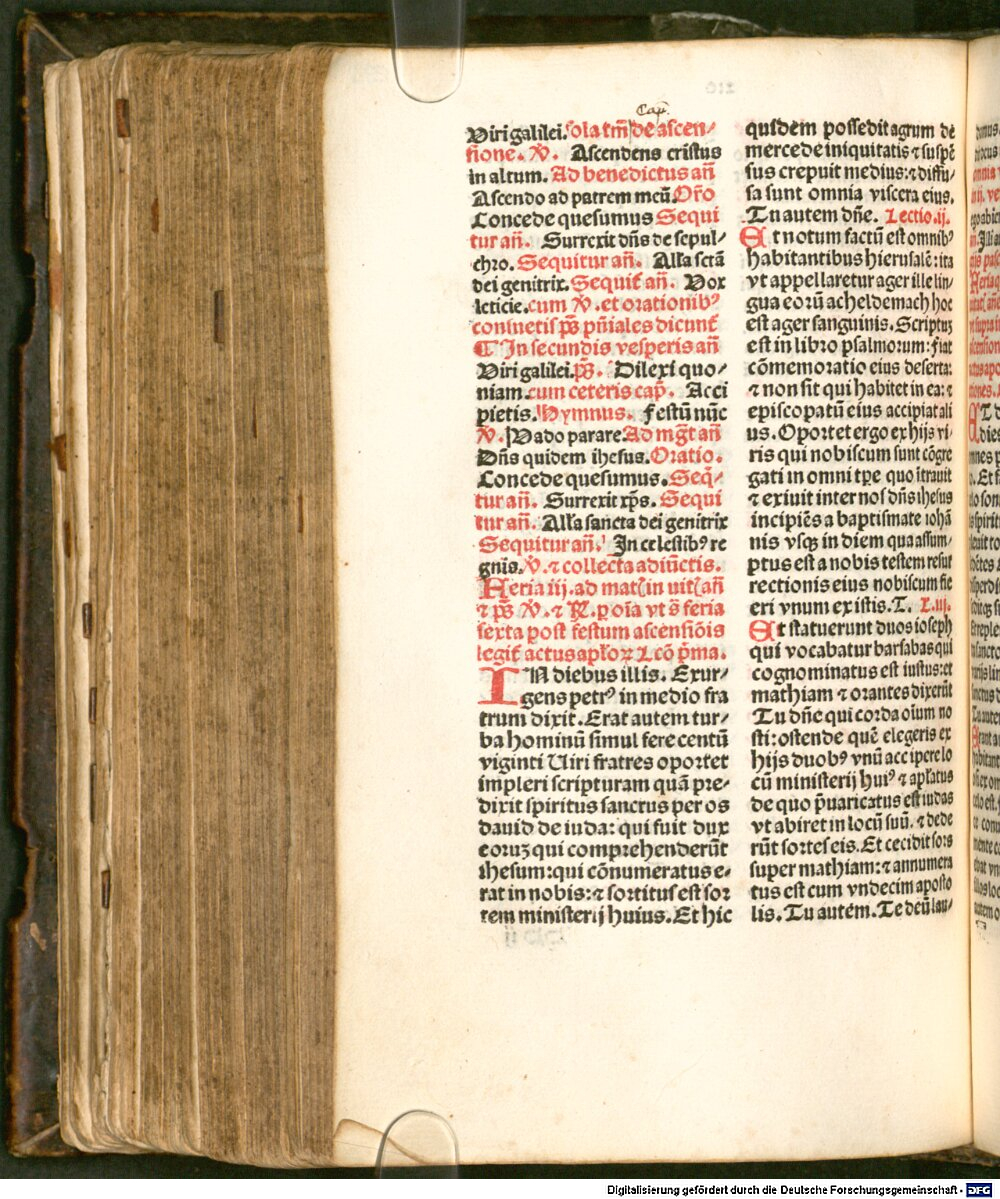 Cap̄.
Viri galilei. sola tm̄ de ascen⸗
sione. ℣. Ascendens cristus
in altum. Ad benedictus an̄
Ascendo ad patrem meū. Or̄o
Concede quesumus Sequi
tur an̄. Surrexit dn̄s de sepul⸗
chro. Sequitur an̄. Alľa sctā
dei genitrix. Sequit̄ an̄. Vox
leticie. cum ℣. et orationibꝰ
consuetis p̄s pn̄iales dicunt̄
¶ In secundis vesperis an̄
Viri galilei. p̄s. Dilexi quo⸗
niam. cum ceteris cap̄. Acci
pietis. Hymnus. Festū nūc
℣. Vado parare. Ad mḡt an̄
Dn̄s quidem ihesus. Oratio.
Concede quesumus. Seq̄⸗
tur an̄. Surrexit xp̄s. Sequi
tur an̄. Alľa sancta dei genitrix
Sequitur an̄. In celestibꝰ re
gnis. ℣. ⁊ collecta adiūctis.
Feria iij. ad mat̄ inuit̄ an̄
⁊ p̄s ℣. ⁊ ℟. p oīa vt s̄ feria
sexta post festum ascensiōis
legit̄ actus apľoꝝ Lcō p̄ma.
IN diebus illis. Exur⸗
gens petrꝰ in medio fra
trum dixit. Erat autem tur⸗
ba hominū simul fere centū
viginti Viri fratres oportet
impleri scripturam quā pre⸗
dixit spiritus sanctus per os
dauid de iuda: qui fuit dux
eoruꝫ qui comprehenderūt
ihesum: qui cōnumeratus e⸗
rat in nobis: ⁊ sortitus est sor
tem ministerij huius. Et hic
quidem possedit agrum de
mercede iniquitatis ⁊ suspē
sus crepuit medius: ⁊ diffu⸗
sa sunt omnia viscera eius.
Tu autem dn̄e. Lectio. ij.
Et notum factū est omnibꝰ
habitantibus hierusalē: ita
vt appellaretur ager ille lin⸗
gua eorū acheldemach hoc
est ager sanguinis. Scriptuꝫ
est in libro psalmorum: fiat
cōmemoratio eius deserta:
⁊ non sit qui habitet in ea: ⁊
episcopatū eius accipiat ali
us. Oportet ergo ex hijs vi⸗
ris qui nobiscum sunt cōgre
gati in omni tp̄e quo ītrauit
⁊ exiuit inter nos dn̄s ihesus
incipiēs a baptismate iohā
nis vsqꝫ in diem qua assum⸗
ptus est a nobis testem resur
rectionis eius nobiscum fie
eri vnum ex istis. T. L. iij.
Et statuerunt duos ioseph
qui vocabatur barsabas qui
cognominatus est iustus: et
mathiam ⁊ orantes dixerūt
Tu dn̄e qui corda oīum no
sti: ostende quē elegeris ex
hijs duobꝰ vnū accipere lo
cū ministerij huiꝰ ⁊ apľatus
de quo p̄uaricatus est iudas
vt abiret in locū suū. ⁊ dede
rūt sortes eis. Et cecidit sors
super mathiam: ⁊ annumera
tus est cum vndecim aposto
lis. Tu autem. Te deū lau⸗
Digitalisierung gefördert durch die Deutsche Forschungsgemeinschaft - DFG